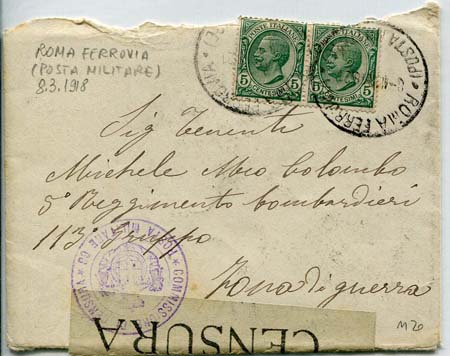 ROMA FERROVIA
(POSTA MILITARE)
8.3.1918
POSTE ITALIANE
5 CENTESIMI 5
POSTE ITALIANE
5 CENTESIMI 5
ROMA FERROVIA
(POSTA
Sig Tenente
Michele Meo Colombo
5° Reggimento bombardieri
113° Gruppo
Zona di guerra
COMMISSIONE
POSTA MILITARE
CENSURA
M20